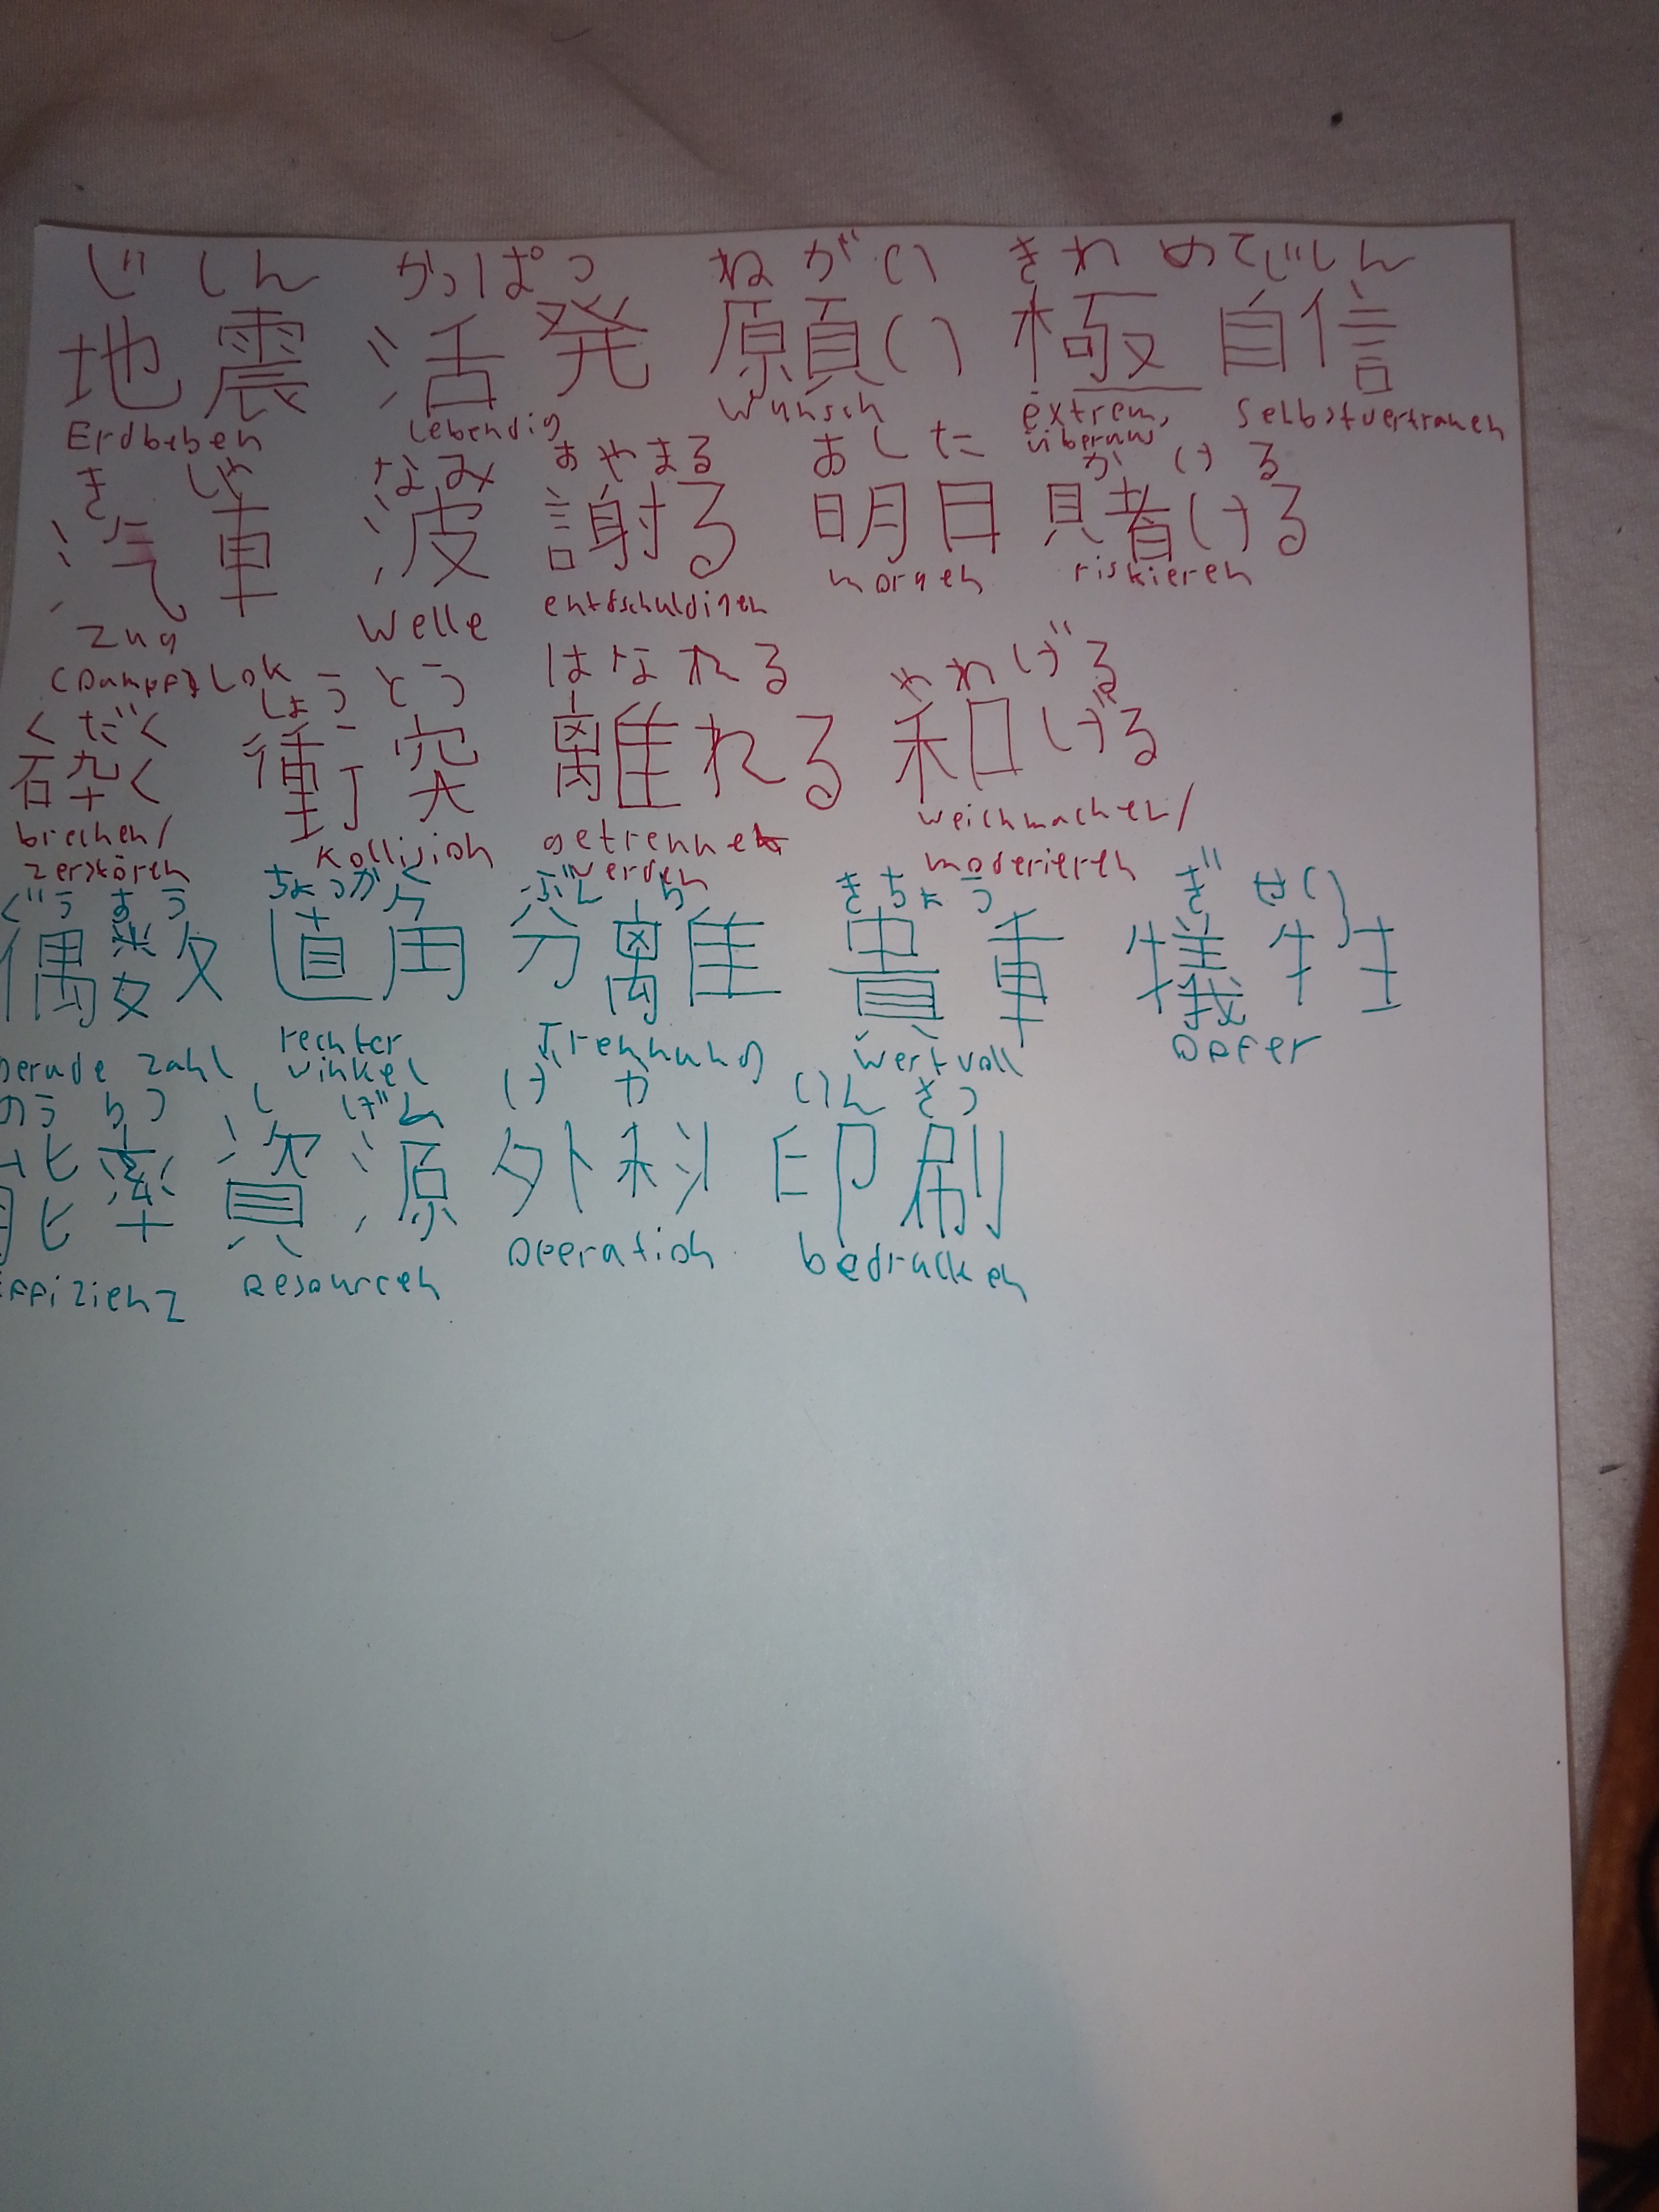 じしん かっぱつ ねがい きわめて じしん
地震 活発 願い 極 自信
Erdbeben Lebendig Wunsch extrem, überaus Selbstvertrauen
きしゃ なみ あやまる あした かける
汽車 波 謝る 明日 賭ける
Zug Welle entschuldigen morgen riskieren
(Dampf) Lok
くだく しょうとつ はなれる やわげる
砕く 衝突 離れる 和げる
brechen/ Kollision getrennt weichmachen/
zerstören werden moderieren
ぐうすう ちょっかく ぶんり きちょう ぎせい
偶数 直角 分離 貴重 犠牲
gerade Zahl rechter Trennung wertvoll Opfer
winkel
のうりつ しげん げか いんさつ
能率 資源 外科 印刷
Effizienz Resourcen Operation bedrucken